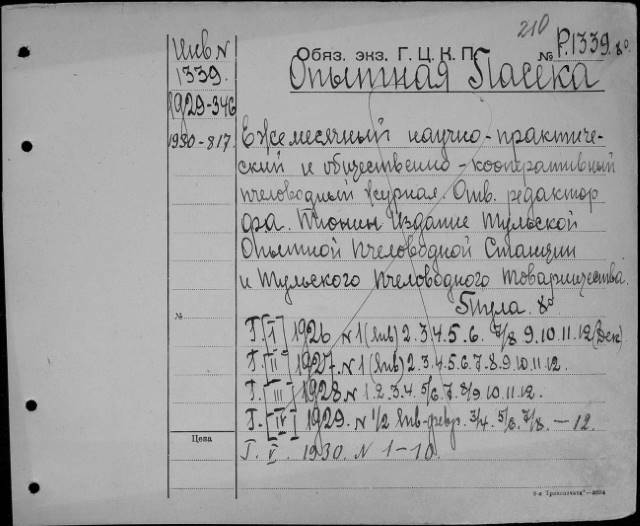 210
Инв N
1339.
1929-346
1930-817.
Обяз. экз. Г. Ц. К. П. № Р.1339. 8°
Опытная Пасека
Ежемесячный научно-практиче-
ский и общественно-кооперативный
пчеловодный журнал. Отв. редактор
Фа. Тюнин Издание Тульской
Опытной Пчеловодной Станции
и Тульского Пчеловодного Товарищества.
Тула. 8°
№
Г. [I] 1926 N 1 (Янв) 2. 3. 4. 5. 6. 7/8 9. 10. 11. 12 (Дек)
Г. [II] 1927. N 1 (Янв) 2. 3. 4. 5. 6. 7. 8. 9. 10. 11. 12.
Г. [III] 1928 N 1. 2. 3. 4. 5/6. 7. 8/9 10. 11. 12.
Г. [IV] 1929. N 1/2 Янв-февр. 3/4. 5/6. 7/8. — 12.
Цена
Г. V. 1930. N 1-10.